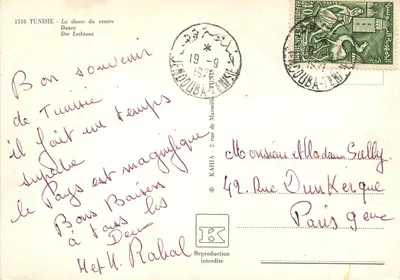 1510 TUNISIE - La danse du ventre
Dance
Der Leibtanz
Bon souvenir
de Tunisie
il fait un temps
superbe
le Pays est magnifique
Bons Baisers
à tous les
Deux
H et H. Rahal
© KAHIA - 2 rue de Marseille
19-9
JENDOUBA-TUNISIE
Monsieur et Madame Sully
42 Rue Dunkerque
Paris 9eme
K
Reproduction
interdite